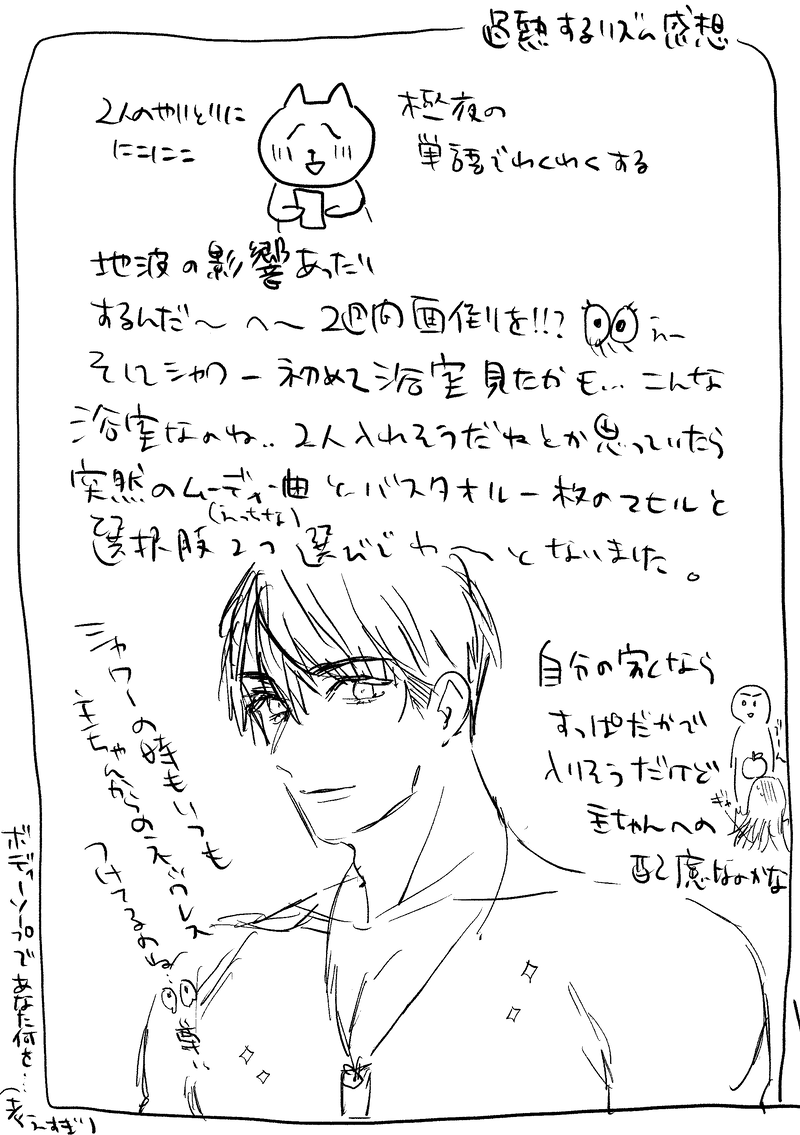 過熱するリズム感想
2人のやりとりに
にこにこ
極夜の
単語でわくわくする
地波の影響あったり
するんだ〜 へ〜 2週間面倒を!!?
えー
そしてシャワー初めて浴室見たかも… こんな
浴室なのね.. 2人入れそうだねとか思っていたら
突然のムーディー曲とバスタオル一枚のマヒルと
選択肢2つ選びでわ〜となりました。
(えっちな)
シャワーの時もいつも
主ちゃんからのネックレス
つけてるのね..
尊..
自分の家なら
すっぱだかで
入りそうだけど
主ちゃんへの
配慮なのかな
ぎゃー
ボディーソープであなた何を…
(考えすぎ)